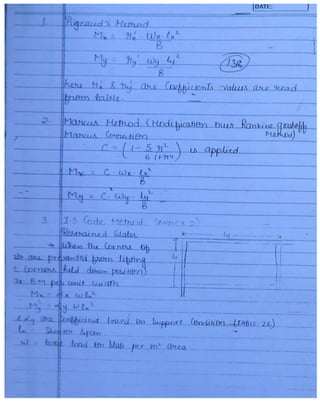 DATE:
1. Pigeaud's Method
Mx = rx' wx lx²
8
My = ry' wy ly²
8
138
here rx' & ry' are Coefficients values are read
from table.
2. Marcus Method (Modification over Rankine Grashoff
Method)
Marcus Correction
C = (1 - 5 r²
6 1+r4) is applied
Mx = C wx lx²
8
My = C wy ly²
8
3. I.S Code Method (ANNEX D)
Restrained Slabs
→ When the Corners of
are prevented from lifting
(corners held down position)
B.M per unit width
Mx = αx w lx²
My = αy w lx²
αy are coefficient based on Support Condition (TABLE 26)
lx = Shorter Span
w = total load on Slab per m² area
ly
lx